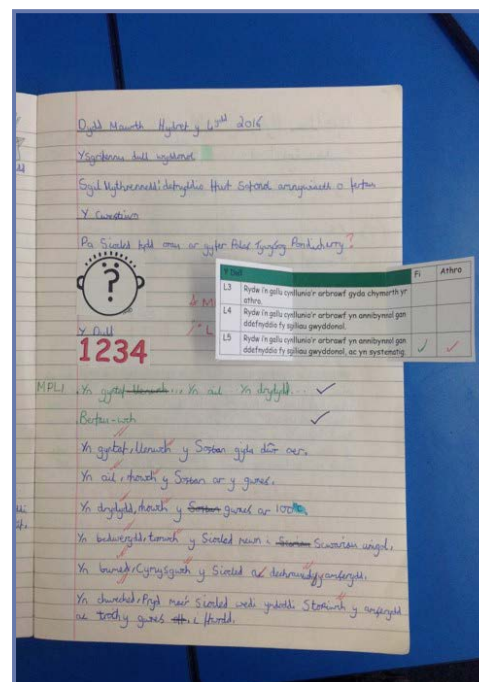 Dydd Mawrth Hydref y 4ydd 2016
Ysgrifennu dull gwyddonol
Sgil llythrennedd: datrysiadau
Y Cwestiwn
Pa Siocled fydd orau ar gyfer Palas Tywysog Pondicherry?
?
Y Dull
Fi
Athro
L3 Rydw i'n gallu cynllunio'r arbrawf gyda chymorth yr athro.
L4 Rydw i'n gallu cynllunio'r arbrawf yn annibynnol gan ddefnyddio fy sgiliau gwyddonol.
L5 Rydw i'n gallu cynllunio'r arbrawf yn annibynnol gan ddefnyddio fy sgiliau gwyddonol, ac yn systematig.
Y Dull
1234
Yn gyntaf ... Yn ail Yn drydydd...
Berfau-wch
Yn gyntaf, llenwch y Sosban gyda dŵr oer.
Yn ail, rhowch y Sosban ar y gwres.
Yn drydydd, rhowch y gwres ar 100°c.
Yn bedwerydd, torrwch y Siocled mewn i Sgwariau unigol.
Yn bumed, Cymysgwch y Siocled ac dechreuwch yr amserydd.
Yn chweched, Pryd mae'r Siocled wedi ymdoddi Stopiwch y amserydd
ac trowch y gwres i ffwrdd.